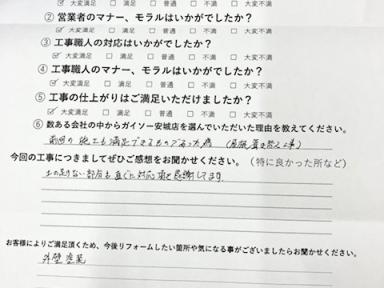 ☑ 大変満足 □ 満足 □ 普通 □ 不満 □ 大変不満
② 営業者のマナー、モラルはいかがでしたか？
☑ 大変満足 □ 満足 □ 普通 □ 不満 □ 大変不満
③ 工事職人の対応はいかがでしたか？
☑ 大変満足 □ 満足 □ 普通 □ 不満 □ 大変不満
④ 工事職人のマナー、モラルはいかがでしたか？
☑ 大変満足 □ 満足 □ 普通 □ 不満 □ 大変不満
⑤ 工事の仕上がりはご満足いただけましたか？
☑ 大変満足 □ 満足 □ 普通 □ 不満 □ 大変不満
⑥ 数ある会社の中からガイソー安城店を選んでいただいた理由を教えてください。
前回の施工も満足できるものであった為 (屋根葺き替え工事)
今回の工事につきましてぜひご感想をお聞かせください。（特に良かった所など）
部分も直ぐに対応頂き感謝してます
お客様によりご満足頂くため、今後リフォームしたい箇所や気になる事がございましたらお聞かせください。
外壁塗装